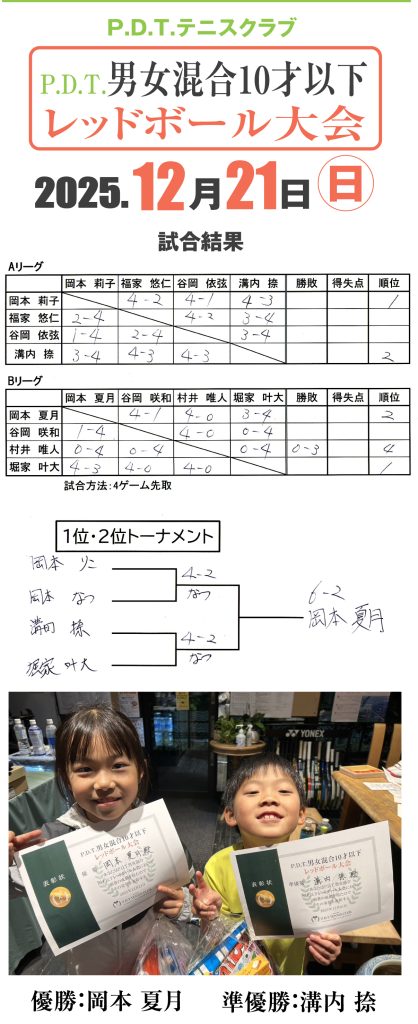 P.D.T.テニスクラブ
P.D.T.男女混合10才以下
レッドボール大会
2025.12月21日 日
試合結果
Aリーグ
岡本 莉子 福家 悠仁 谷岡 依弦 溝内 捺 勝敗 得失点 順位
岡本 莉子 4-2 4-1 4-3 1
福家 悠仁 2-4 4-2 3-4
谷岡 依弦 1-4 2-4 3-4
溝内 捺 3-4 4-3 4-3 2
Bリーグ
岡本 夏月 谷岡 咲和 村井 唯人 堀家 叶大 勝敗 得失点 順位
岡本 夏月 4-1 4-0 3-4 2
谷岡 咲和 1-4 4-0 0-4
村井 唯人 0-4 0-4 0-4 0-3 4
堀家 叶大 4-3 4-0 4-0 1
試合方法:4ゲーム先取
1位・2位トーナメント
岡本 りこ
4-2
岡本 なつ
なつ
6-2
岡本 夏月
溝内 捺
4-2
堀家 叶大
YONEX
表彰状
P.D.T.男女混合10才以下
レッドボール大会
優勝 岡本 夏月殿
表彰状
P.D.T.男女混合10才以下
レッドボール大会
準優勝 溝内 捺殿
優勝:岡本 夏月
準優勝:溝内 捺